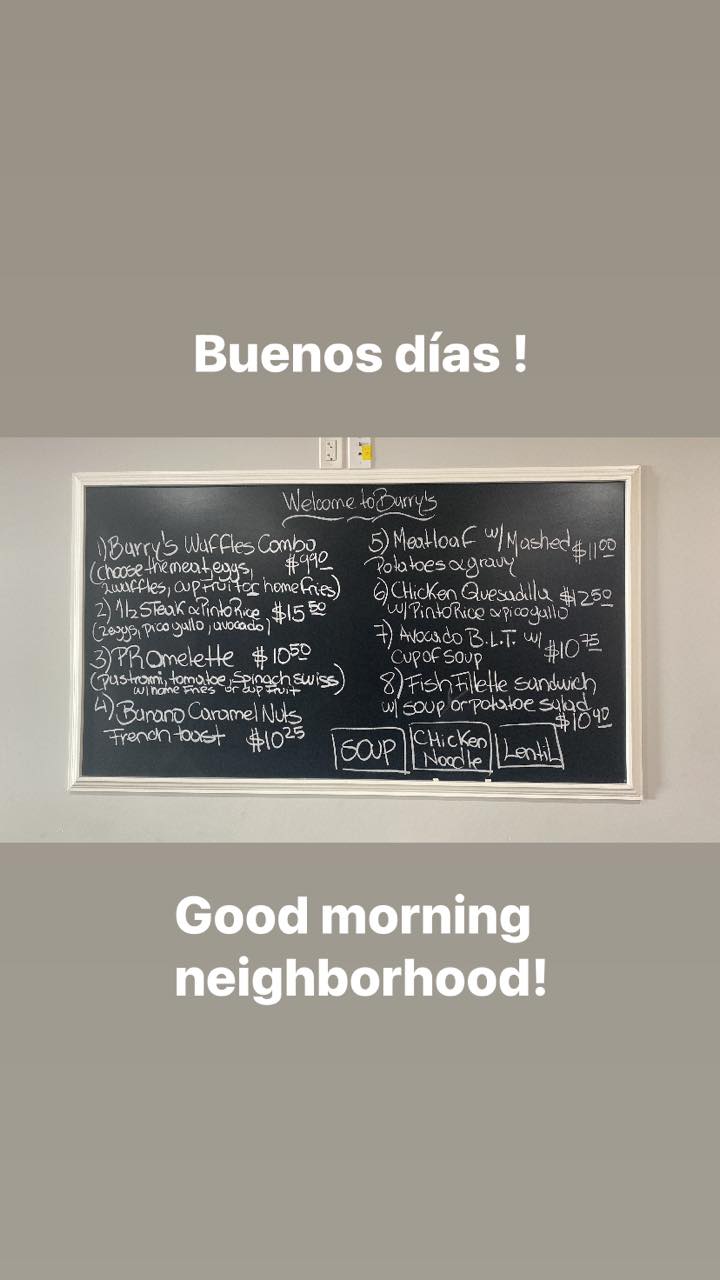 Buenos días !
Welcome to Barry's
1) Barry's Waffles Combo
(choose the meat, eggs, $9.90
2 waffles, cup fruit or home fries)
2) 1/2 Steak & Pinto Rice $15.50
(2 eggs, pico gallo, avocado)
3) PR Omelette $10.50
(pastrami, tomatoe, Spinach swiss)
w/ home fries or cup fruit
4) Banano Caramel Nuts
French toast $10.25
5) Meatloaf w/ Mashed $11.00
Potatoes & gravy
6) Chicken Quesadilla $12.50
w/ Pinto Rice & pico gallo
7) Avocado B.L.T. w/ $10.75
cup of soup
8) Fish Fillette sandwich
w/ soup or potatoe salad
$10.40
SOUP
CHicKen
Noodle
Lentil
Good morning
neighborhood!